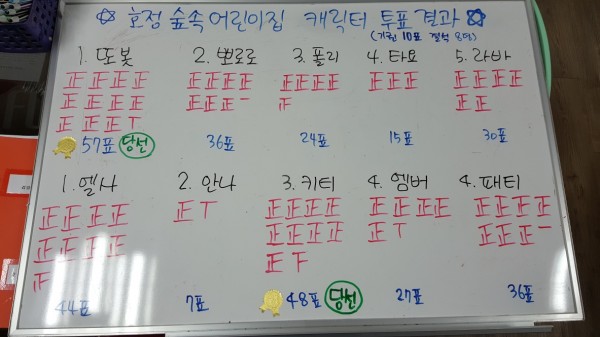 호정 숲속어린이집 캐릭터 투표결과
(기권 10표 결석 8명)
1. 또봇 2. 뽀로로 3. 폴리 4. 타요 5. 라바
正正正正 正正正正 正正正正 正正正 正正正正
正正正正 正正正一 正 正正
正正正丅
57표 당선 36표 24표 15표 30표
1. 엘사 2. 안나 3. 키티 4. 엠버 4. 패티
正正正正 正丅 正正正正 正正正正 正正正正
正正正正 正正正正 正丅 正正正一
正 正下
44표 7표 48표 당선 27표 36표